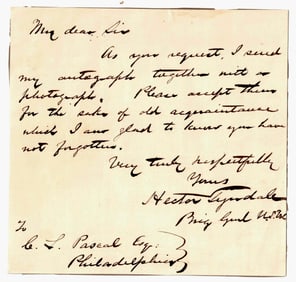 My dear Sir
As you request, I send
my autograph together with a
photograph. Please accept them
for the sake of old acquaintance
which I am glad to know you have
not forgotten.
Very truly respectfully
Yours
Hector Tyndale
Brig Genl U.S. Vol
To
C. L. Pascal Esq.
Philadelphia